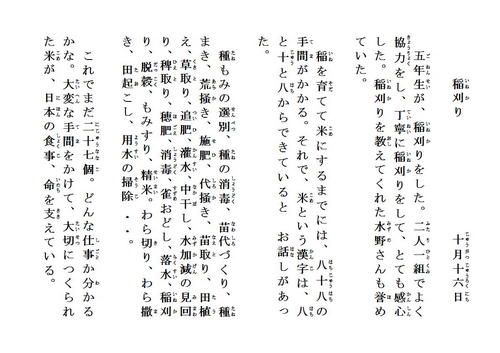 稲刈り　十月十六日
五年生が、稲刈りをした。二人一組でよく
協力をし、丁寧に稲刈りをして、とても感心
した。稲刈りを教えてくれた水野さんも誉め
ていた。
稲を育てて米にするまでには、八十八の
手間がかかる。それで、米という漢字は、八
と十と八からできていると　お話しがあっ
た。
種もみの選別、種の消毒、苗代づくり、種
まき、荒掻き、施肥、代掻き、苗取り、田植
え、草取り、追肥、灌水、中干し、水加減の見回
り、稗取り、穂肥、消毒、雀おどし、落水、稲刈
り、脱穀、もみすり、精米。わら切り、わら撒
き、田起こし、用水の掃除・・・。
これでまだ二十七個。どんな仕事か分かる
かな。大変な手間をかけて、大切につくられ
た米が、日本の食事、命を支えている。